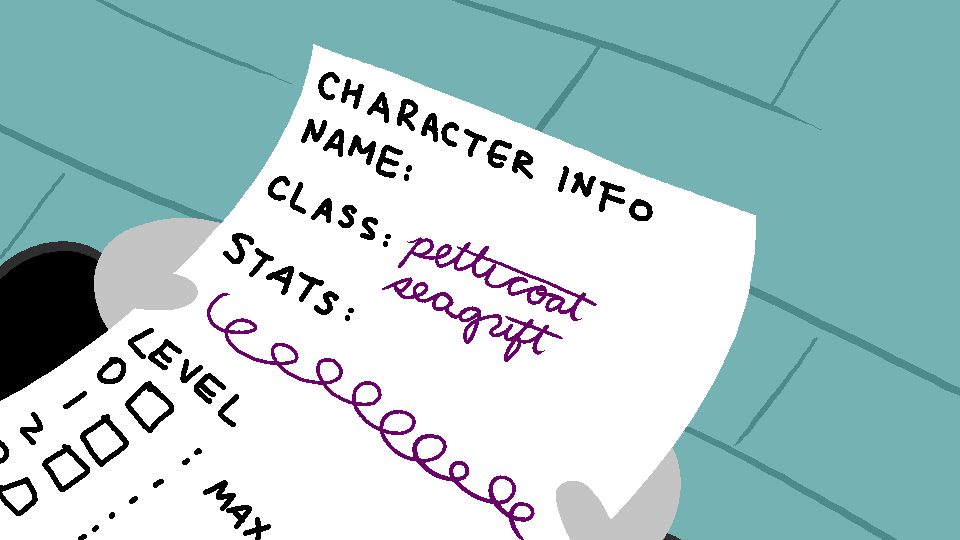 CHARACTER INFO
NAME:
CLASS: petticoat
seagrift
STATS:
LEVEL
0
1
2
MAX